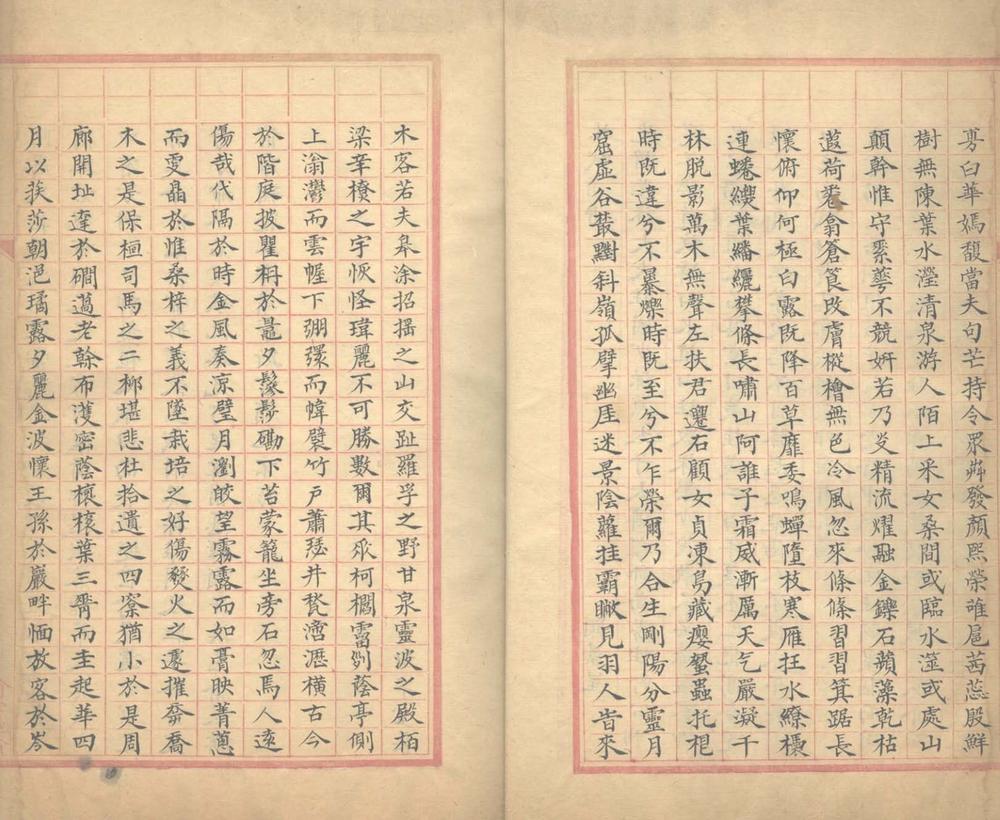 雱白華嫣馥當夫句芒持令眾卉發顏熙榮雇扈茜蕊殷鮮
樹無陳葉水瀅清泉游人陌上采女桑間或臨水澨或處山
顛幹惟守素蕚不競妍若乃炎精流燿融金鑠石蘋藻乾枯
遐荷卷翕蒼筤改膚樅檜無色冷風忽來條條習習箕踞長
懷俯仰何極白露既降百草靡委鳴蟬墮枝寒雁在水繚櫌
連蜷緩葉繙纚攀條長嘯山阿誰子霜威漸厲天气嚴凝千
林脫影萬木無聲左扶君遷石顧女貞凍舄藏癭蟄蟲托梞
時既違兮不暴爍時既至兮不乍榮爾乃合生剛陽分靈月
窟虛谷藂斣斜嶺孤擘幽厓迷景陰蘿挂霸瞰見羽人昔來
木客若夫皋涂招搖之山交趾羅孚之野甘泉靈波之殿栢
梁辛橑之宇恢怪瑋麗不可勝數爾其泒柯櫩霤𠛱蔭亭側
上滃灣而雲幄下弸彋而幃襞竹戶蕭瑟井甃㵝瀝橫古今
於階庭披瞿枏於鼂夕鬖髿磡下苔蒙籠坐旁石忽焉人遠
傷哉代隔於時金風奏涼璧月瀏皎望霧露而如膏映菁蔥
而雯晶於惟桑梓之義不墜栽培之好傷發火之遽摧奔喬
木之是保桓司馬之二柳堪悲杜拾遺之四寮猶小於是周
廊開址達於磵薖老榦布濩密蔭榱榱葉三脊而圭起華四
月以挨莎朝浥璚露夕麗金波懷王孫於巖畔愐放客於岑